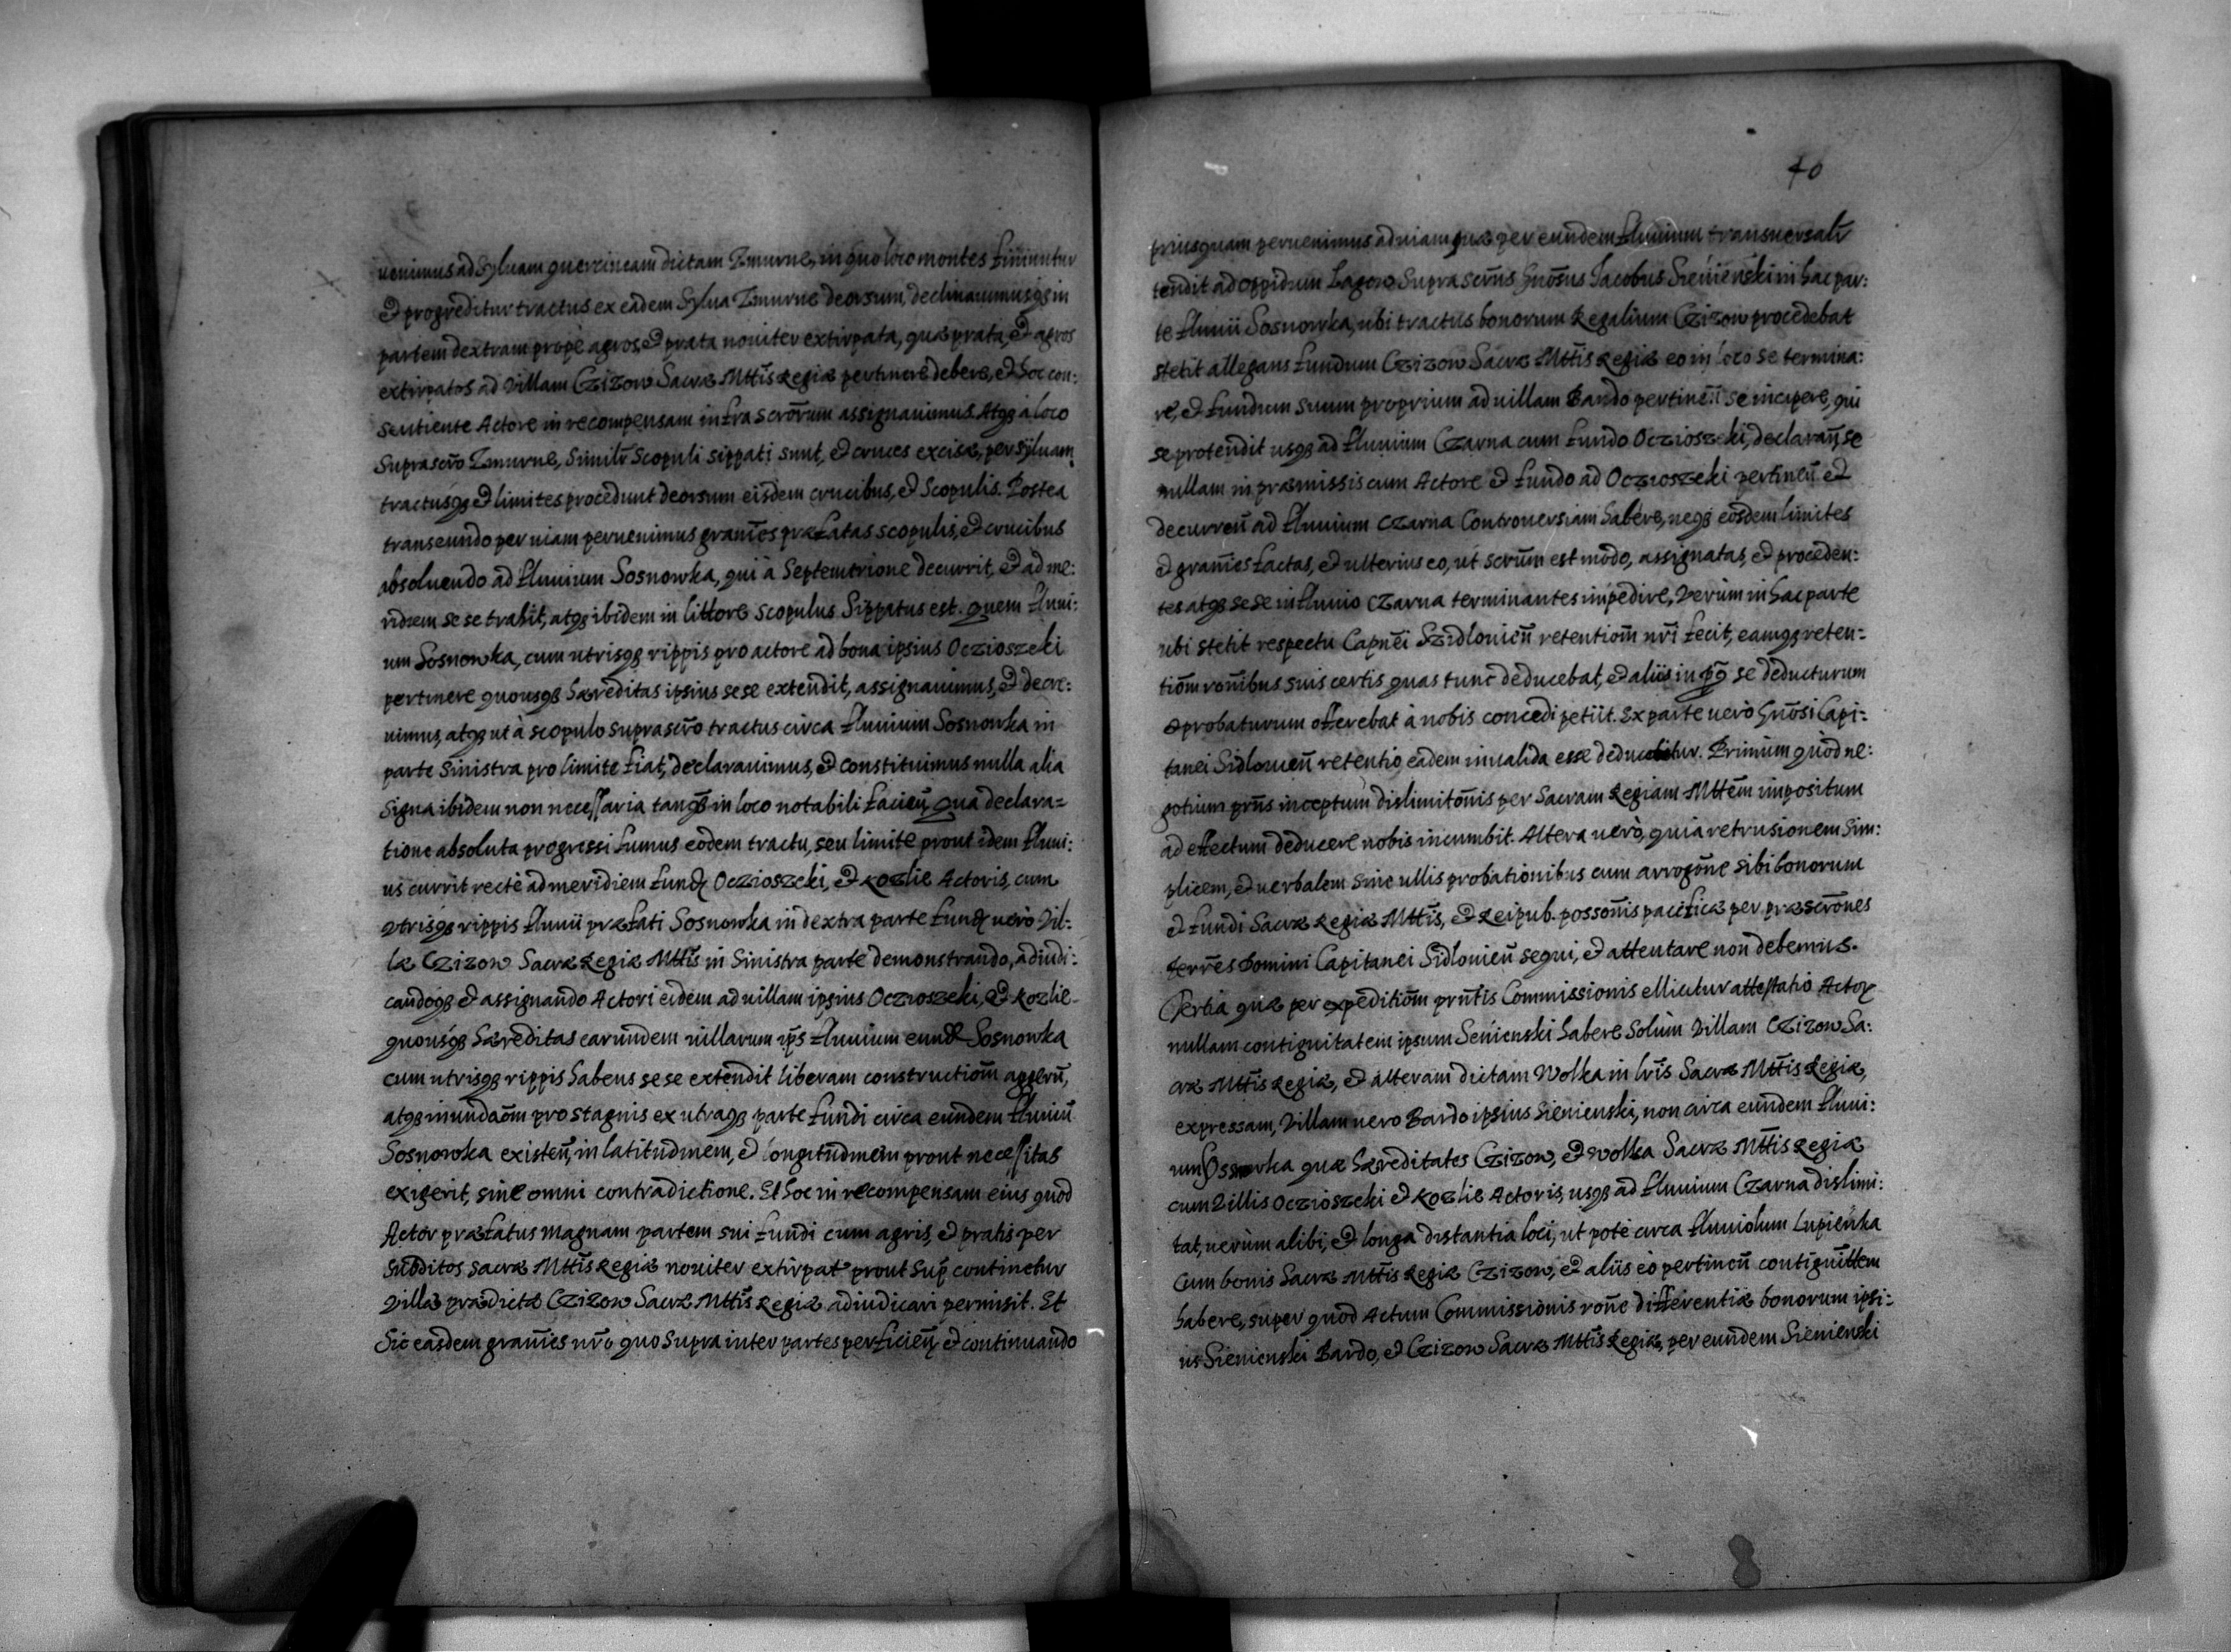 uenimus ad Syluam quercineam dictam Zmurne, in quo loco montes finiuntur
& progreditur tractus ex eadem Sylua Zmurne deorsum, declinauimusq3 in
partem dextram propè agros, & prata nouiter extirpata, quæ prata, & agros
extirpatos ad Villam Czizow Sacræ Mttis Regiæ pertinere debere, & hoc con:
sentiente Actore in recompensam infrascrorum assignauimus. Atq3 à loco
Suprascro Zmurne, Similr Scopuli sippati sunt, & cruces excisæ, per Syluam
tractusq3 & limites procedunt deorsum eisdem crucibus, & Scopulis. Postea
transeundo per uiam peruenimus granies præfatas scopulis, & crucibus
absoluendo ad fluuium Sosnowka, qui à Septemtrione decurrit, & ad me:
ridiem se se trahit, atq3 ibidem in littore scopulus Sippatus est. Quem fluui:
um Sosnowka, cum utrisq3 rippis pro actore ad bona ipsius Oczioszeki
pertinere quousq3 hæreditas ipsius sese extendit, assignauimus, & decre:
uimus, atq3 ut à scopulo suprascro tractus circa fluuium Sosnowka in
parte Sinistra pro limite fiat, declarauimus, & constituimus nulla alia
Signa ibidem non necessaria tanq3 in loco notabili facien, Qua declara=
tione absoluta progressi sumus eodem tractu, seu limite prout idem fluui:
us currit rectè ad meridiem fund Oczioszeki, & Kozlie Actoris, cum
Vtrisq3 rippis fluuii præfati Sosnowka in dextra parte fund uerò Vil:
læ Czizow Sacræ Regiæ Mttis in Sinistra parte demonstrando, adiudi:
candoq3 & assignando Actori eidem ad uillam ipsius Oczioszeki, & Kozlie
quousq3 hæreditas earundem uillarum ips fluuium eund Sosnowka
cum utrisq3 rippis habens sese extendit liberam constructiom aggeru,
atq3 inundaom pro stagnis ex utraq3 parte fundi circa eundem fluuiu
Sosnowka existen, in latitudinem, & longitudinem prout necessitas
exigerit, sine omni contradictione. Et hoc in recompensam eius quod
Actor præfatus magnam partem sui fundi cum agris, & pratis per
Subditos sacræ Mttis Regiæ nouiter extirpat prout Sup continetur
Villæ prædictæ Czizow Sacræ Mttis Regiæ adiudicari permisit. Et
Sic easdem granies nro quo supra inter partes perficien, & continuando
40
priusquam peruenimus ad uiam quæ per eundem fluuium transuersalr
tendit ad oppidum Lagow Suprascrus Gnosus Iacobus Sieniński in hac par:
te fluuii Sosnowka, ubi tractus bonorum Regalium Czizow procedebat
stetit allegans fundum Czizow Sacræ Mttis Regiæ eo in loco se termina:
re, & fundum suum proprium ad uillam Bardo pertinen se incipere, qui
se protendit usq3 ad fluuium Czarna cum fundo Oczioszeki, declaran, se
nullam in præmissis cum Actore & fundo ad Oczioszeki pertinen &
decurren ad fluuium Czarna Controuersiam habere, neq3 eosdem limites
& granies factas, & ulterius eo, ut scrum est modo, assignatas, & proceden:
tes atq3 se se in fluuio Czarna terminantes impedire, Verùm in hac parte
ubi stetit respectu Capnei Szidlouien retentiom nri fecit, eamq3 reten:
tiom ronibus suis certis quas tunc deducebat, & aliis in se deducturum
& probaturum offerebat à nobis concedi petiit. Ex parte uerò Gnosi Capi:
tanei Sidlouien retentio eadem inualida esse deducitur. Primum quòd ne:
gotium prns inceptum dislimitonis per Sacram Regiam Mttem impositum
ad effectum deducere nobis incumbit. Altera uerò, quia retrusionem Sim:
plicem, & uerbalem sine ullis probationibus cum arrogone sibi bonorum
& fundi Sacræ Regiæ Mttis, & Reipub. possonis pacificæ per præscrones
terres Domini Capitanei Sidlouien sequi, & attentare non debemus.
Tertia quæ per expeditiom prntis Commissionis ellicitur attestatio Actor
nullam contiguitatem ipsum Senienski habere Solùm Villam Czizow Sa:
cræ Mttis Regiæ, & alteram dictam Wolka in lris Sacræ Mttis Regiæ,
expressam, Villam uero Bardo ipsius Sienienski, non circa eundem fluui:
um Sosnowka quæ hæreditates Czizow, & Wolka Sacræ Mttis Regiæ
cum Villis Oczioszeki & Kozlie Actoris, usq3 ad fluuium Czarna dislimi:
tat, uerùm alibi, & longa distantia loci, ut potè circa fluuiolum Lupieńka
Cum bonis Sacræ Mttis Regiæ Czizow, & aliis eò pertinen contiguittem
habere, super quod Actum Commissionis rone differentiæ bonorum ipsi:
us Sienienski Bardo, & Czizow Sacræ Mttis Regiæ, per eundem Sienienski